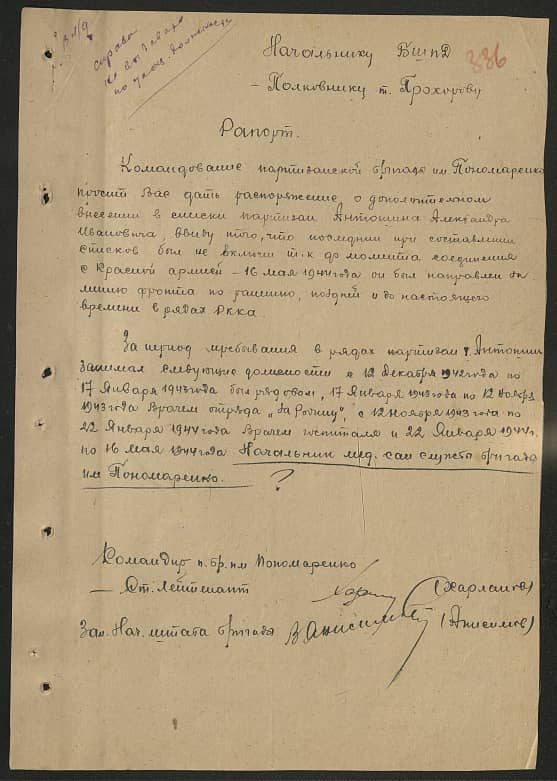 справа
Начальнику БШПД
336
— Полковнику т. Прохорову
Рапорт.
Командование партизанской бригады им Пономаренко
просит Вас дать распоряжение о дополнительном
внесении в списки партизан Антошина Александра
Ивановича, ввиду того, что последний при составлении
списков был не включен т.к до момента соединения
с Красной армией – 16 мая 1944 года он был направлен за
линию фронта по ранению, поздней и до настоящего
времени в рядах РККА.
За период пребывания в рядах партизан т. Антошин
занимал следующие должности с 12 Декабря 1942 года по
17 Января 1943 года был рядовом, 17 Января 1943 года по 12 Ноября
1943 года Врачем отряда „За Родину", с 12 Ноября 1943 года по
22 Января 1944 года Врачем госпиталя и 22 Января 1944 г.
по 16 мая 1944 года Начальник мед. сан службы бригады
им Пономаренко. ?
Командир п. бр. им Пономаренко
— Ст. Лейтенант (Харланов)
Зам. Нач. штаба бригады В Анисимов (Анисимов)